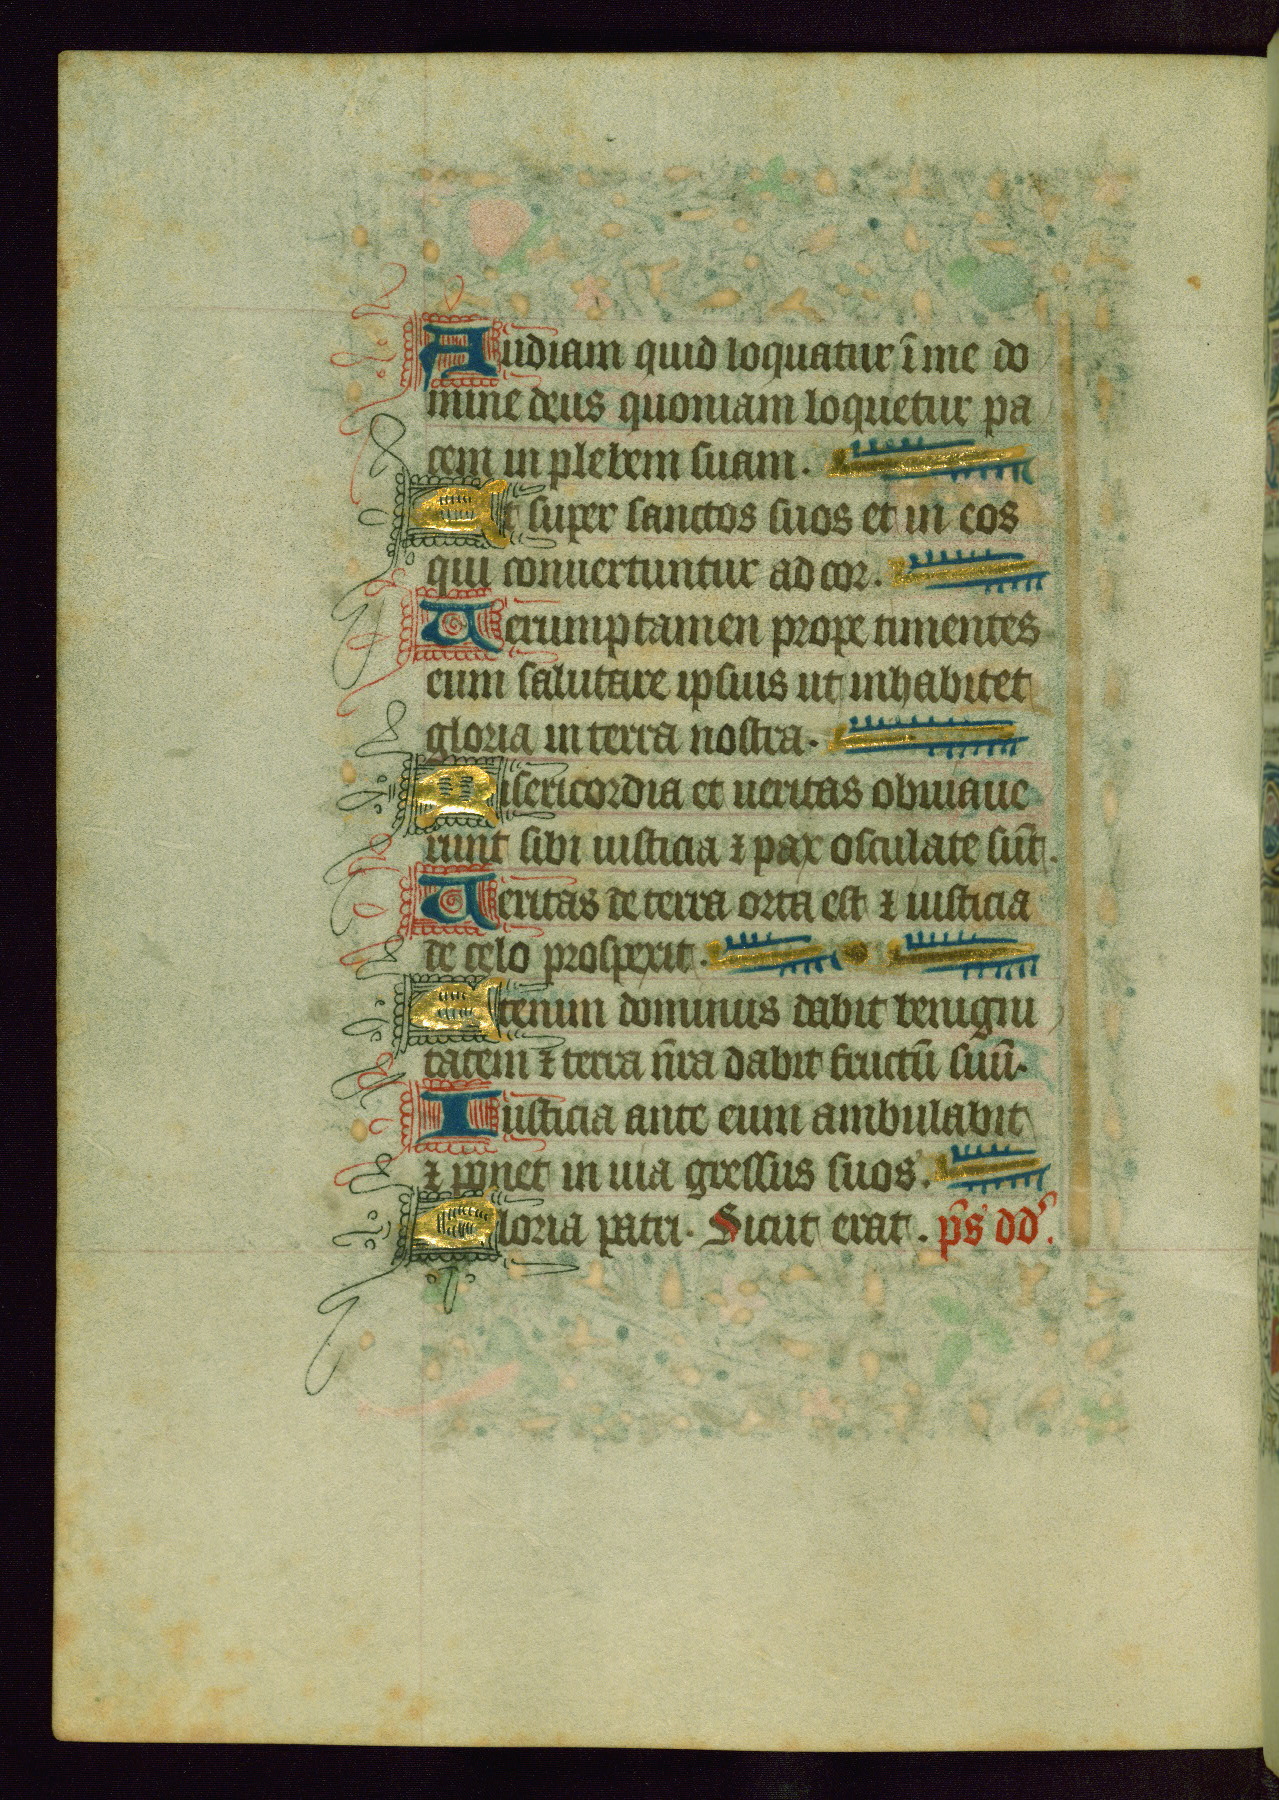 Audiam quid loquatur ī me do
mine deus quoniam loquetur pa
cem in plebem suam.
Et super sanctos suos et in eos
qui conuertuntur ad cor.
Uerumptamen prope timentes
eum salutare ipsius ut inhabitet
gloria in terra nostra.
Misericordia et ueritas obuiaue
runt sibi iusticia ⁊ pax osculate sūt.
Ueritas de terra orta est ⁊ iusticia
de celo prospexit.
Etenim dominus dabit benigni
tatem ⁊ terra nr̄a dabit fructū suū.
Iusticia ante eum ambulabit
⁊ ponet in uia gressus suos.
Gloria patri. Sicut erat. p̄s dd'.